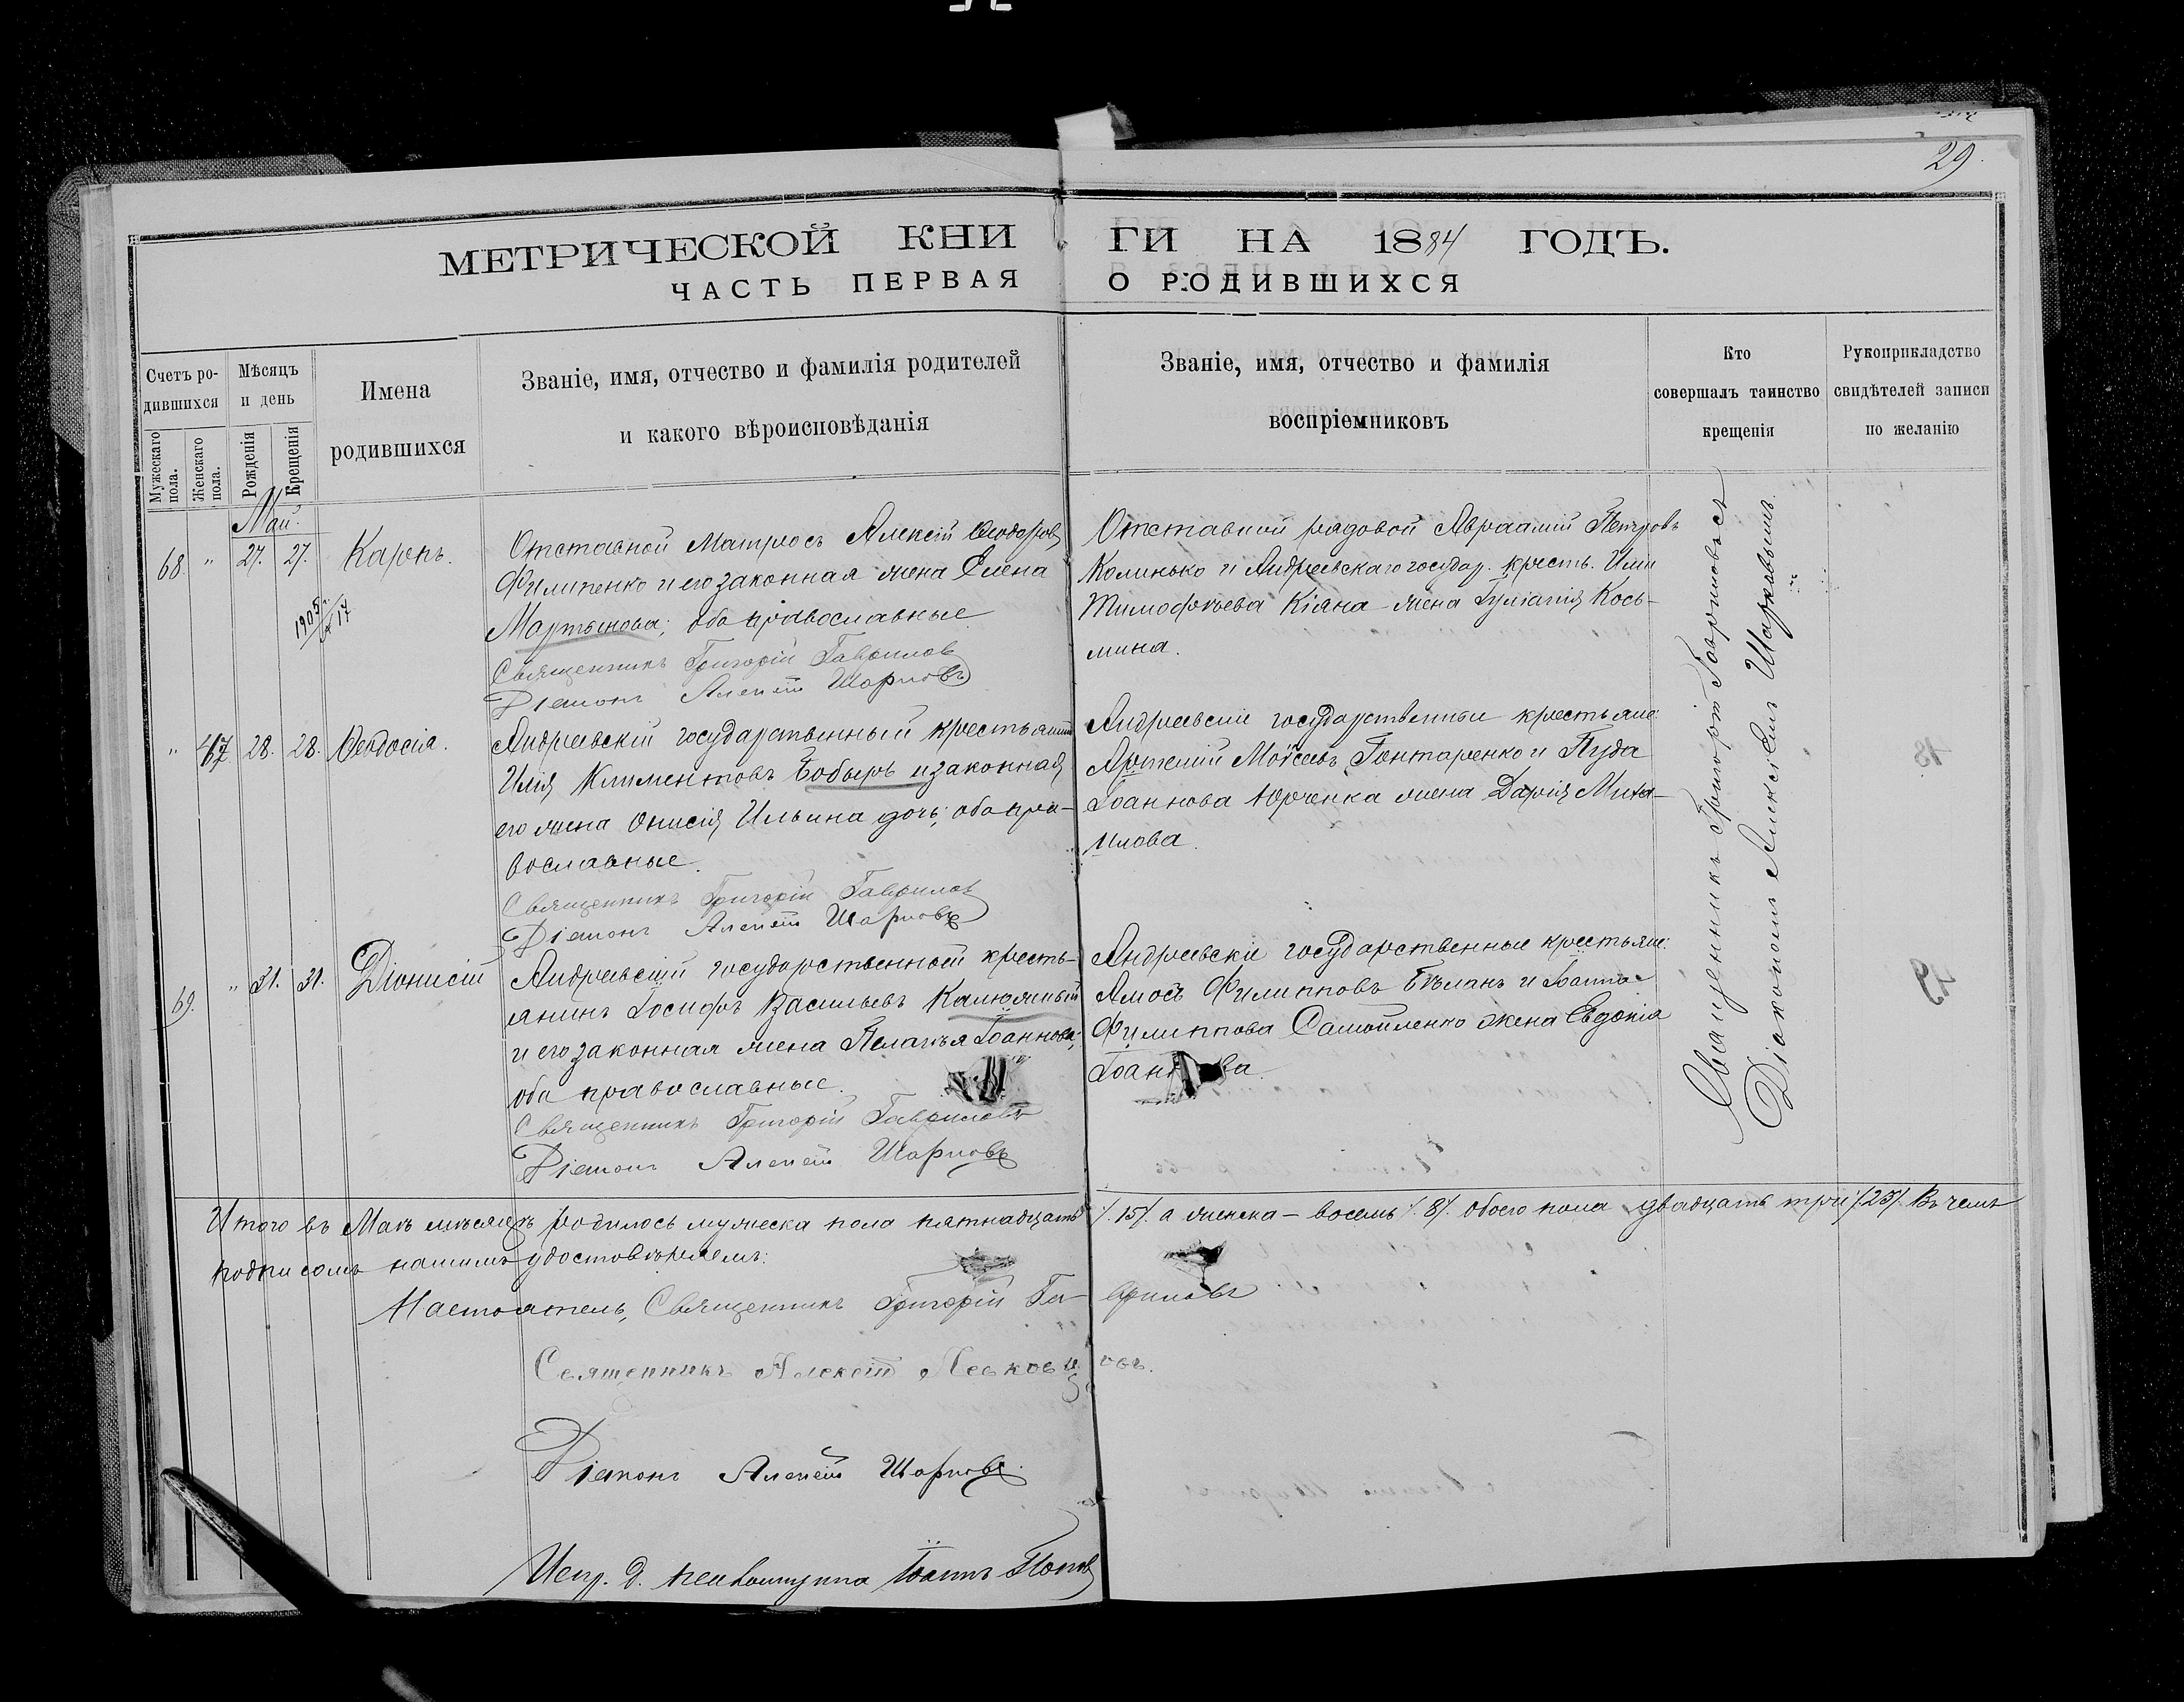 29.
МЕТРИЧЕСКОЙ КНИ ГИ НА 1884 ГОДЪ.
ЧАСТЬ ПЕРВАЯ О РОДИВШИХСЯ
Счетъ ро-
дившихся
Мужескаго пола.
Женскаго пола.
Мѣсяцъ
и день
Рожденія
Крещенія
Имена
родившихся
Званіе, имя, отчество и фамилія родителей
и какого вѣроисповѣданія
Званіе, имя, отчество и фамилія
воспріемниковъ
Кто
совершалъ таинство
крещенія
Рукоприкладство
свидѣтелей записи
по желанію
Май.
68. " 27. 27. Карпъ.
1905 17
Отставной Матросъ Алексій Ѳеодоровъ
Филипенко и его законная жена Елена
Мартынова; оба православные
Священникъ Григорій Гавриловъ
Діаконъ Алексій Шарповъ
Отставной рядовой Авраамій Петровъ
Колинько и Андреевскаго государ. крест. Иліи
Тимофѣева Кіяна жена Іуліанія Кось-
мина.
" 47 28. 28. Ѳеодосія.
Андреевскій государственный крестьянинъ
Илія Климентовъ Бобырь и законная
его жена Онисія Ильина дочь; оба пра-
вославные.
Священникъ Григорій Гавриловъ
Діаконъ Алексій Шарповъ
Андреевскіе государственные крестьяне:
Артемій Моѵсеевъ Гонтаренко и Пуда
Іоаннова Юрченка жена Дарія Миха-
илова.
69. " 31. 31. Діонисій
Андреевскій государственный кресть-
янинъ Іосифъ Васильевъ Калюжный
и его законная жена Пелагія Іоаннова;
оба православные.
Священникъ Григорій Гавриловъ
Діаконъ Алексій Шарповъ
Андреевскіе государственные крестьяне:
Амосъ Филипповъ Бѣланъ и Іоанна
Филиппова Самойленко жена Евдокія
Іоаннова.
Священникъ Григорій Гавриловъ съ
Діакономъ Алексіемъ Шарповымъ.
Итого въ Маѣ мѣсяцѣ родилось мужеска пола пятнадцать /.15/. а женска – восемь /.8/. обоего пола двадцать три /.23/. Въ чемъ
подписомъ нашимъ удостовѣряемъ:
Настоятель, Священникъ Григорій Га- вриловъ
Священникъ Алексій Лесковц овъ.
Діаконъ Алексій Шарповъ.
Испр. д. псаломщика Іоаннъ Поповъ